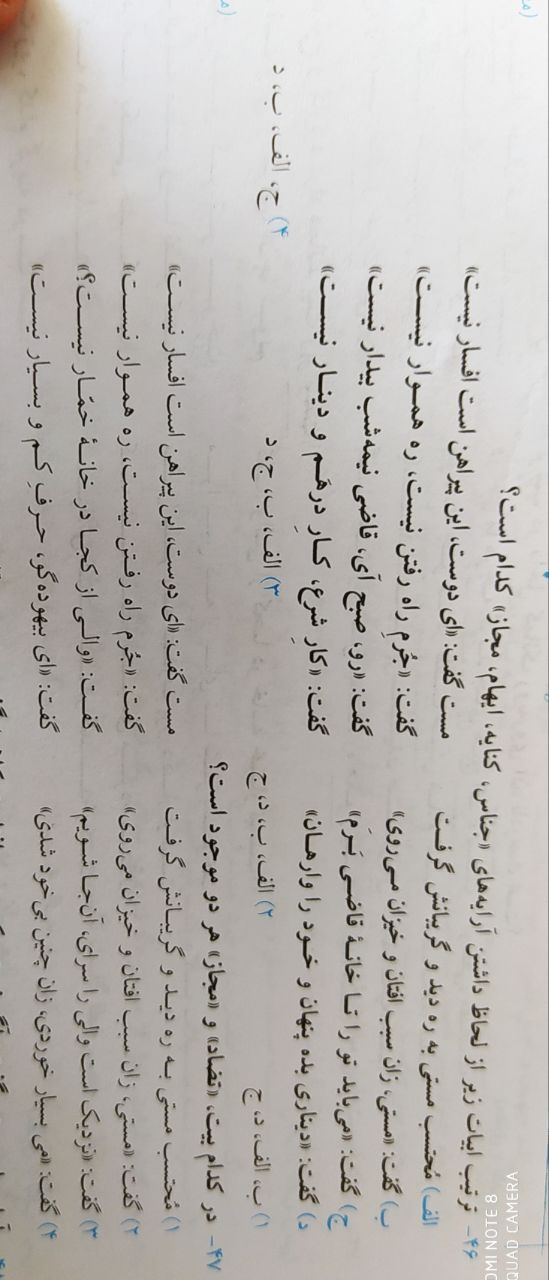 ۴۶- ترتیب ابیات زیر از لحاظ داشتن آرایه‌های «جناس، کنایه، ایهام، مجاز» کدام است؟
الف) مُحتسب مستی به ره دید و گریبانش گرفت مست گفت: «ای دوست، این پیراهن است افسار نیست»
ب) گفت: «مستی، زان سبب افتان و خیزان می‌روی» گفت: «جُرمِ راه رفتن نیست، ره هموار نیست»
ج) گفت: «می‌باید تو را تا خانۀ قاضی بَرَم» گفت: «رو، صبح آی، قاضی نیمه‌شب بیدار نیست»
د) گفت: «دیناری بده پنهان و خود را وارهان» گفت: «کارِ شرع، کارِ درهَم و دینار نیست»
۱) ب، الف، د، ج ۲) الف، ب، د، ج ۳) الف، ب، ج، د ۴) ج، الف، ب، د
۴۷- در کدام بیت، «تضاد» و «مجاز» هر دو موجود است؟
۱) مُحتسب مستی به ره دید و گریبانش گرفت مست گفت: «ای دوست، این پیراهن است افسار نیست»
۲) گفت: «مستی، زان سبب افتان و خیزان می‌روی» گفت: «جُرم راه رفتن نیست، ره هموار نیست»
۳) گفت: «نزدیک است والی را سرای، آن‌جا شویم» گفت: «والی از کجا در خانۀ خمّار نیست؟»
۴) گفت: «می بسیار خوردی، زان چنین بی‌خود شدی» گفت: «ای بیهوده‌گو، حرفِ کم و بسیار نیست»
OMI NOTE 8
QUAD CAMERA